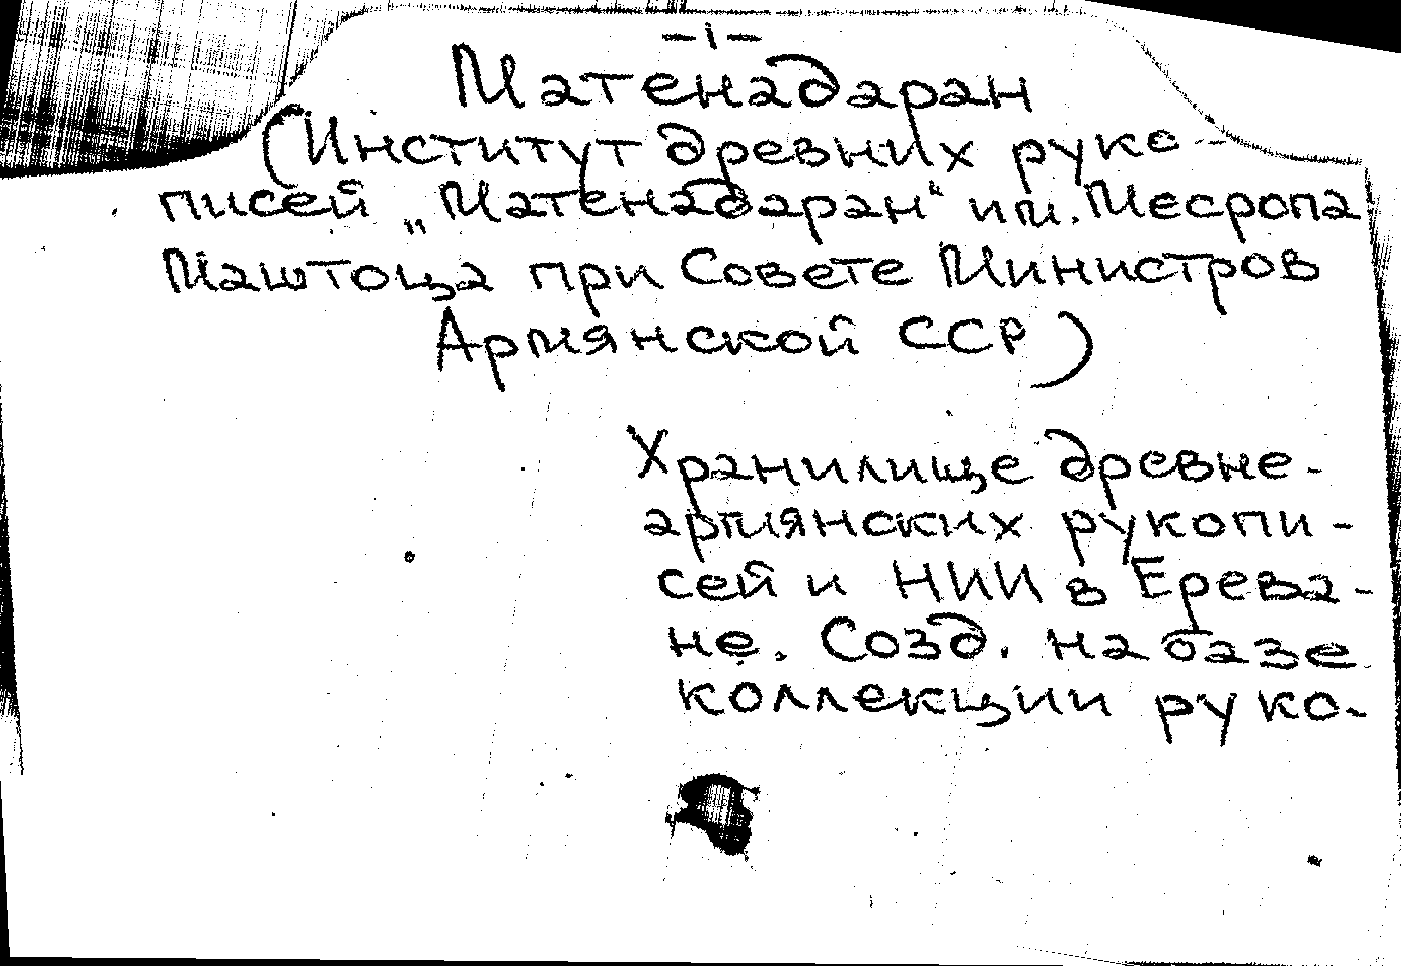 -1-
Матенадаран
(Институт древних руко-
писей „Матенадаран“ им. Месропа
Маштоца при Совете Министров
Армянской ССР)
Хранилище древне-
армянских рукопи-
сей и НИИ в Ерева-
не. Созд. на базе
коллекции руко-